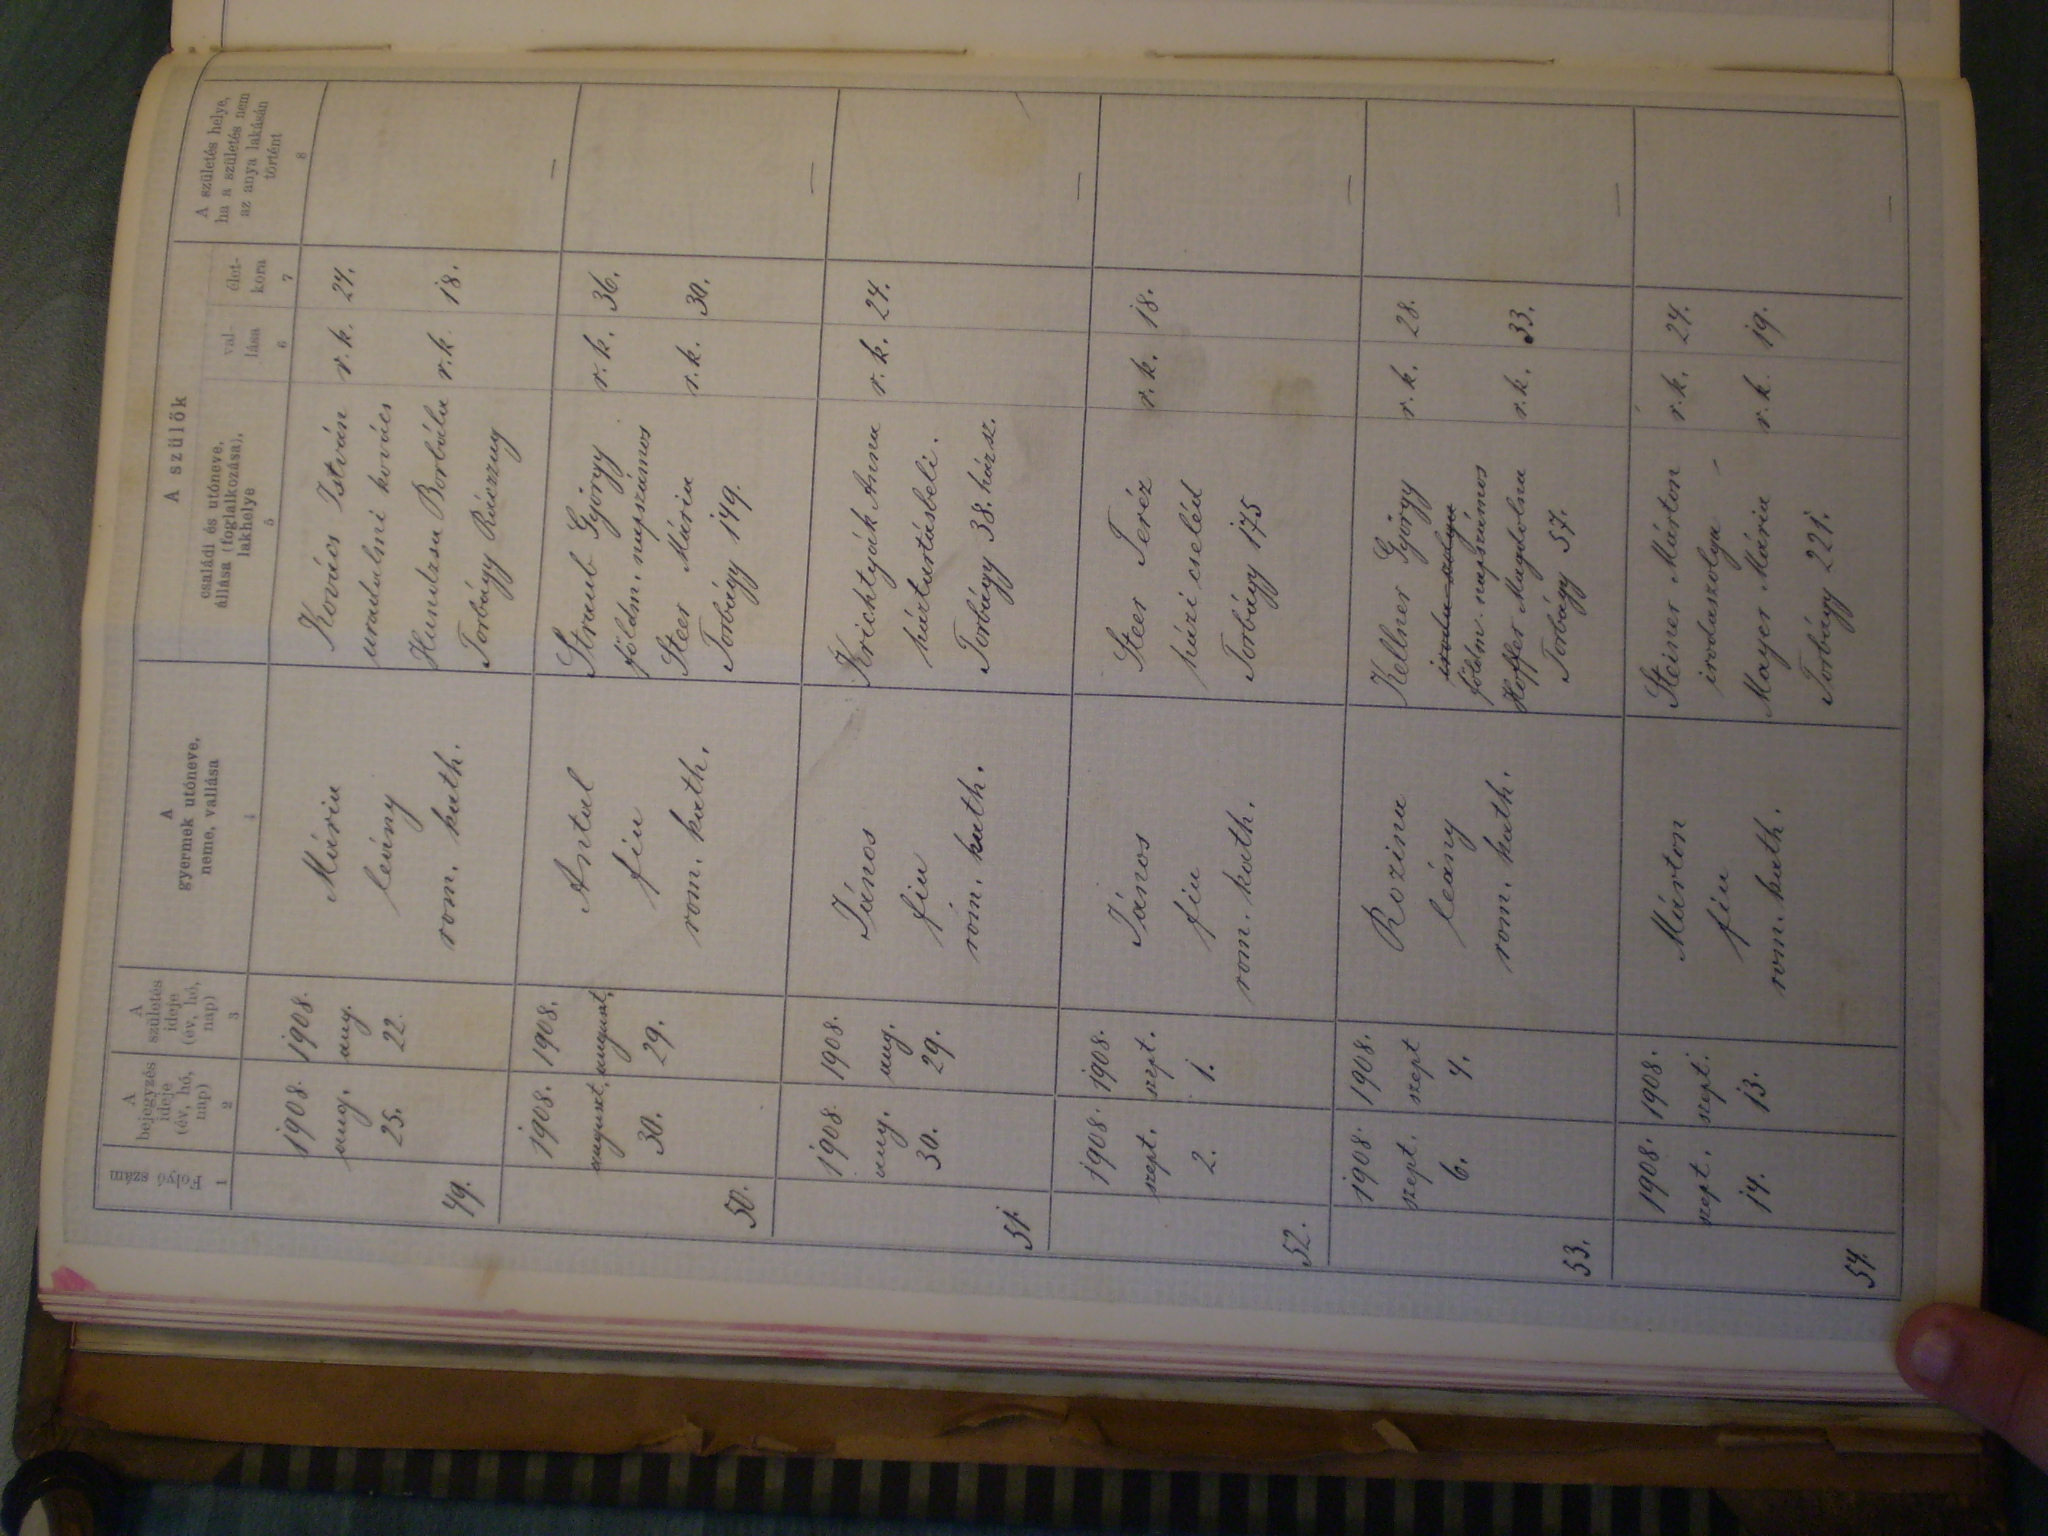 Folyó szám
1
A
bejegyzés
ideje
(év, hó,
nap)
2
A
születés
ideje
(év, hó,
nap)
3
A
gyermek utóneve,
neme, vallása
4
A szülők
családi és utóneve,
állása (foglalkozása),
lakhelye
5
val-
lása
6
élet-
kora
7
A születés helye,
ha a születés nem
az anya lakásán
történt
8
49.
1908.
aug.
25.
1908.
aug.
22.
Mária
leány
rom. kath.
Kovács István
uradalmi kovács
Borbála
Torbágy
r. k.
r. k.
24.
18.
—
50.
1908.
august.
30.
1908.
august.
29.
Antal
fiu
rom. kath.
Straub György
földm. napszámos
Steer Mária
Torbágy 149.
r. k.
r. k.
36.
30.
—
51.
1908.
aug.
30.
1908.
aug.
29.
János
fiu
róm. kath.
Krichtyák Anna
háztartásbeli.
Torbágy 38. házsz.
r. k.
24.
—
52.
1908.
szept.
2.
1908.
szept.
1.
János
fiu
rom. kath.
Steer Teréz
házi cseléd
Torbágy 175
r. k.
18.
—
53.
1908.
szept.
6.
1908.
szept
4.
Rozina
leány
rom. kath.
Kellner György
iroda szolga
földm. napszámos
Hoffer Magdolna
Torbágy 57.
r. k.
r. k.
28.
33.
—
54.
1908.
szept.
14.
1908.
szept.
13.
Márton
fiu
rom. kath.
Steiner Márton
irodaszolga –
Mayer Mária
Torbágy 221.
r. k.
r. k.
24.
19.
—